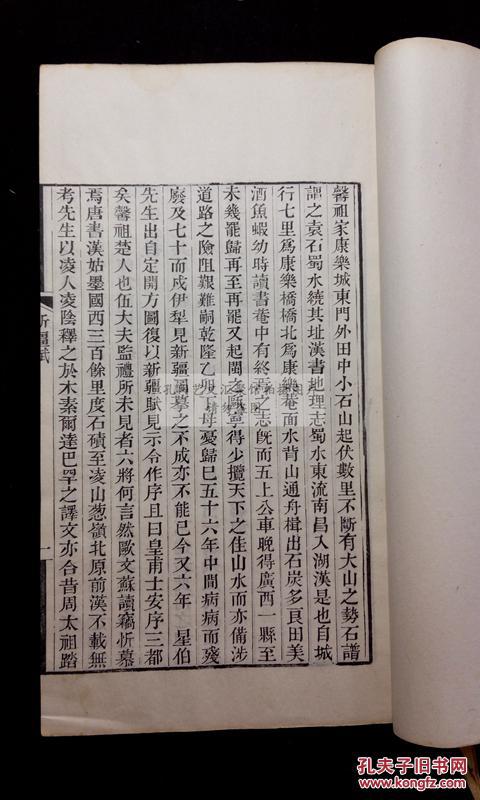 馨祖家康樂城東門外田中小石山起伏數里不斷有大山之勢石譜
謂之袁石蜀水繞其址漢書地理志蜀水東流南昌入湖漢是也自城
行七里爲康樂橋橋北爲康樂菴面水背山通舟楫出石炭多良田美
酒魚蝦幼時讀書菴中有終焉之志旣而五上公車晚得廣西一縣至
未幾罷歸再至再罷又起閩之甌寧得少攬天下之佳山水而亦備涉
道路之險阻艱難嗣乾隆乙卯丁母憂歸巳五十六年中間病病而殘
廢及七十而戍伊犁見新疆圖摹之不成亦不能已今又六年 星伯
先生出自定開方圖復以新疆賦見示令作序且曰皇甫士安序三都
矣馨祖楚人也伍大夫監禮所未見者六將何言然歐文蘇讀竊忻慕
焉唐書漢姑墨國西三百餘里度石磧至凌山葱嶺北原前漢不載無
考先生以凌人凌陰釋之於木素爾達巴罕之譯文亦合昔周太祖踏
新疆賦
一
孔夫子旧书网
www.kongfz.com